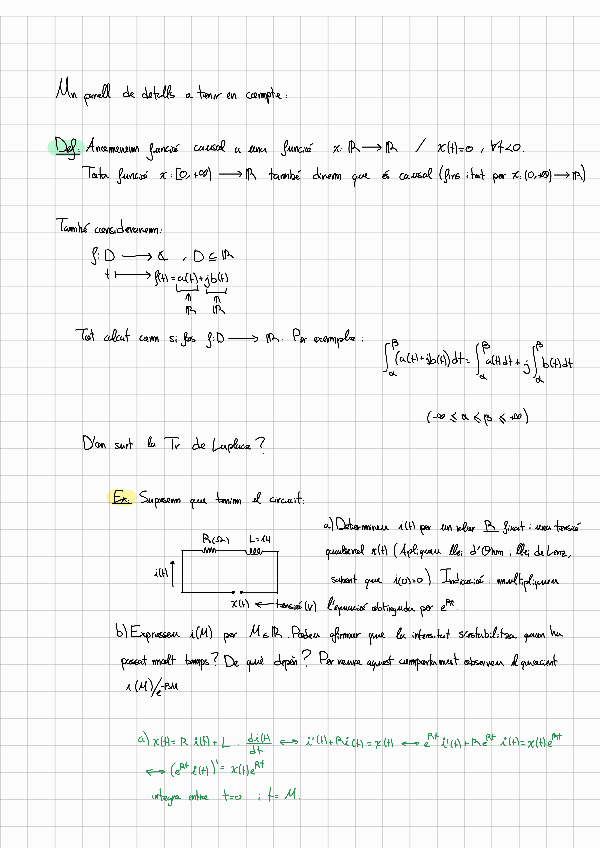 Un parell de detalls a tenir en compte:
Def: Anomenem funció causal a una funció x: ℝ → ℝ / x(t)=0, ∀t<0.
Tota funció x: [0,+∞) → ℝ també direm que és causal (fins i tot per x: (0,+∞) → ℝ)
També considerarem:
f: D → ℂ , D ⊆ ℝ
t ↦ f(t) = a(t) + jb(t)
ℝ ℝ
Tot calcat com si fos f: D → ℝ. Per exemple:
∫_α^β (a(t)+jb(t))dt = ∫_α^β a(t)dt + j∫_α^β b(t)dt
(-∞ ≤ α ≤ β ≤ +∞)
D'on surt la Tr de Laplace?
Ex. Suposem que tenim el circuit:
R(Ω) L=1H
i(t) ↑
x(t) ← tensió (V)
a) Determineu i(t) per un valor R fixat i una tensió
qualsevol x(t) (Apliqueu llei d'Ohm i llei de Lenz,
sabent que i(0)=0) Indicació multipliqueu
l'equació obtinguda per e^{Rt}
b) Expresseu i(M) per M∈ℝ. Podeu afirmar que la intensitat s'estabilitza quan ha
passat molt temps? De què depèn? Per veure aquest comportament observeu el quocient
i(M)/e^{-RM}
a) x(t) = R i(t) + L · di(t)/dt ↔ i'(t)+Ri(t)=x(t) ↔ e^{Rt} i'(t)+Re^{Rt} i(t)=x(t)e^{Rt}
↔ (e^{Rt} i(t))' = x(t)e^{Rt}
integra entre t=0 i t=M.